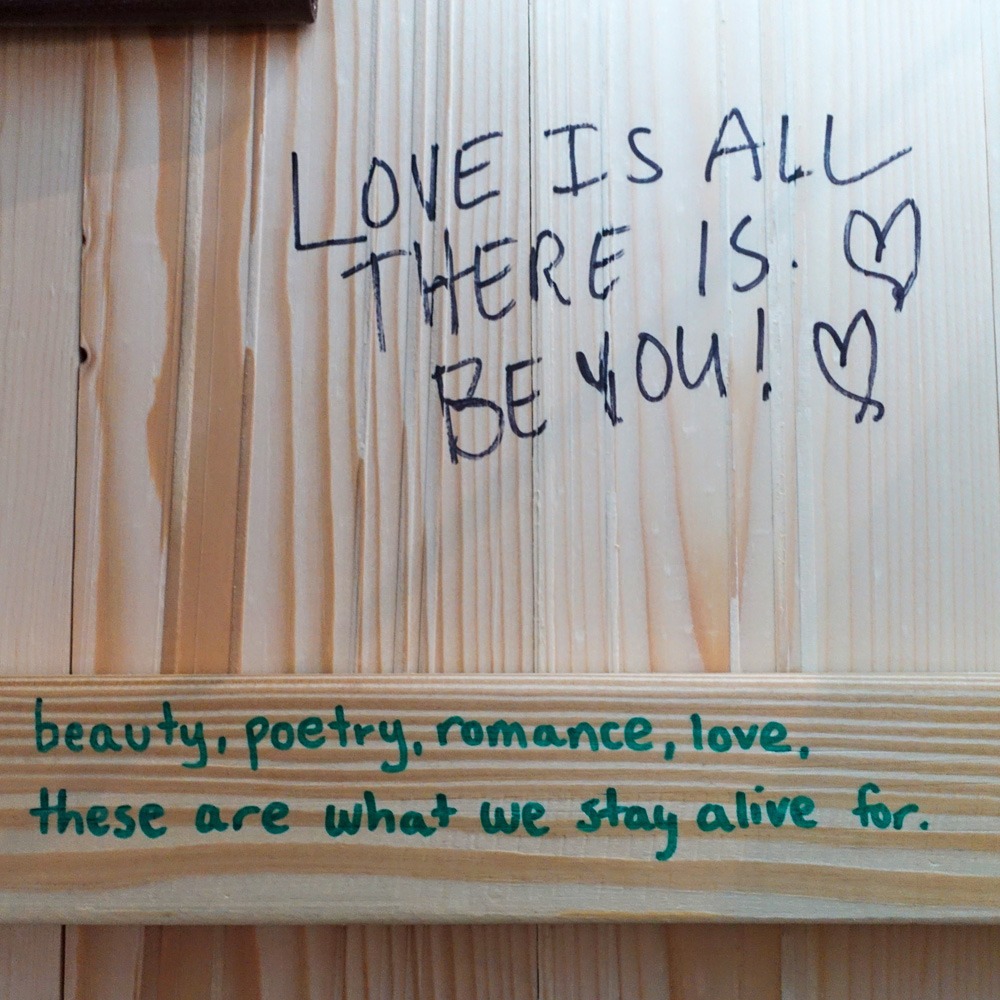 LOVE IS ALL
THERE IS. ♡
BE YOU! ♡
beauty, poetry, romance, love,
these are what we stay alive for.